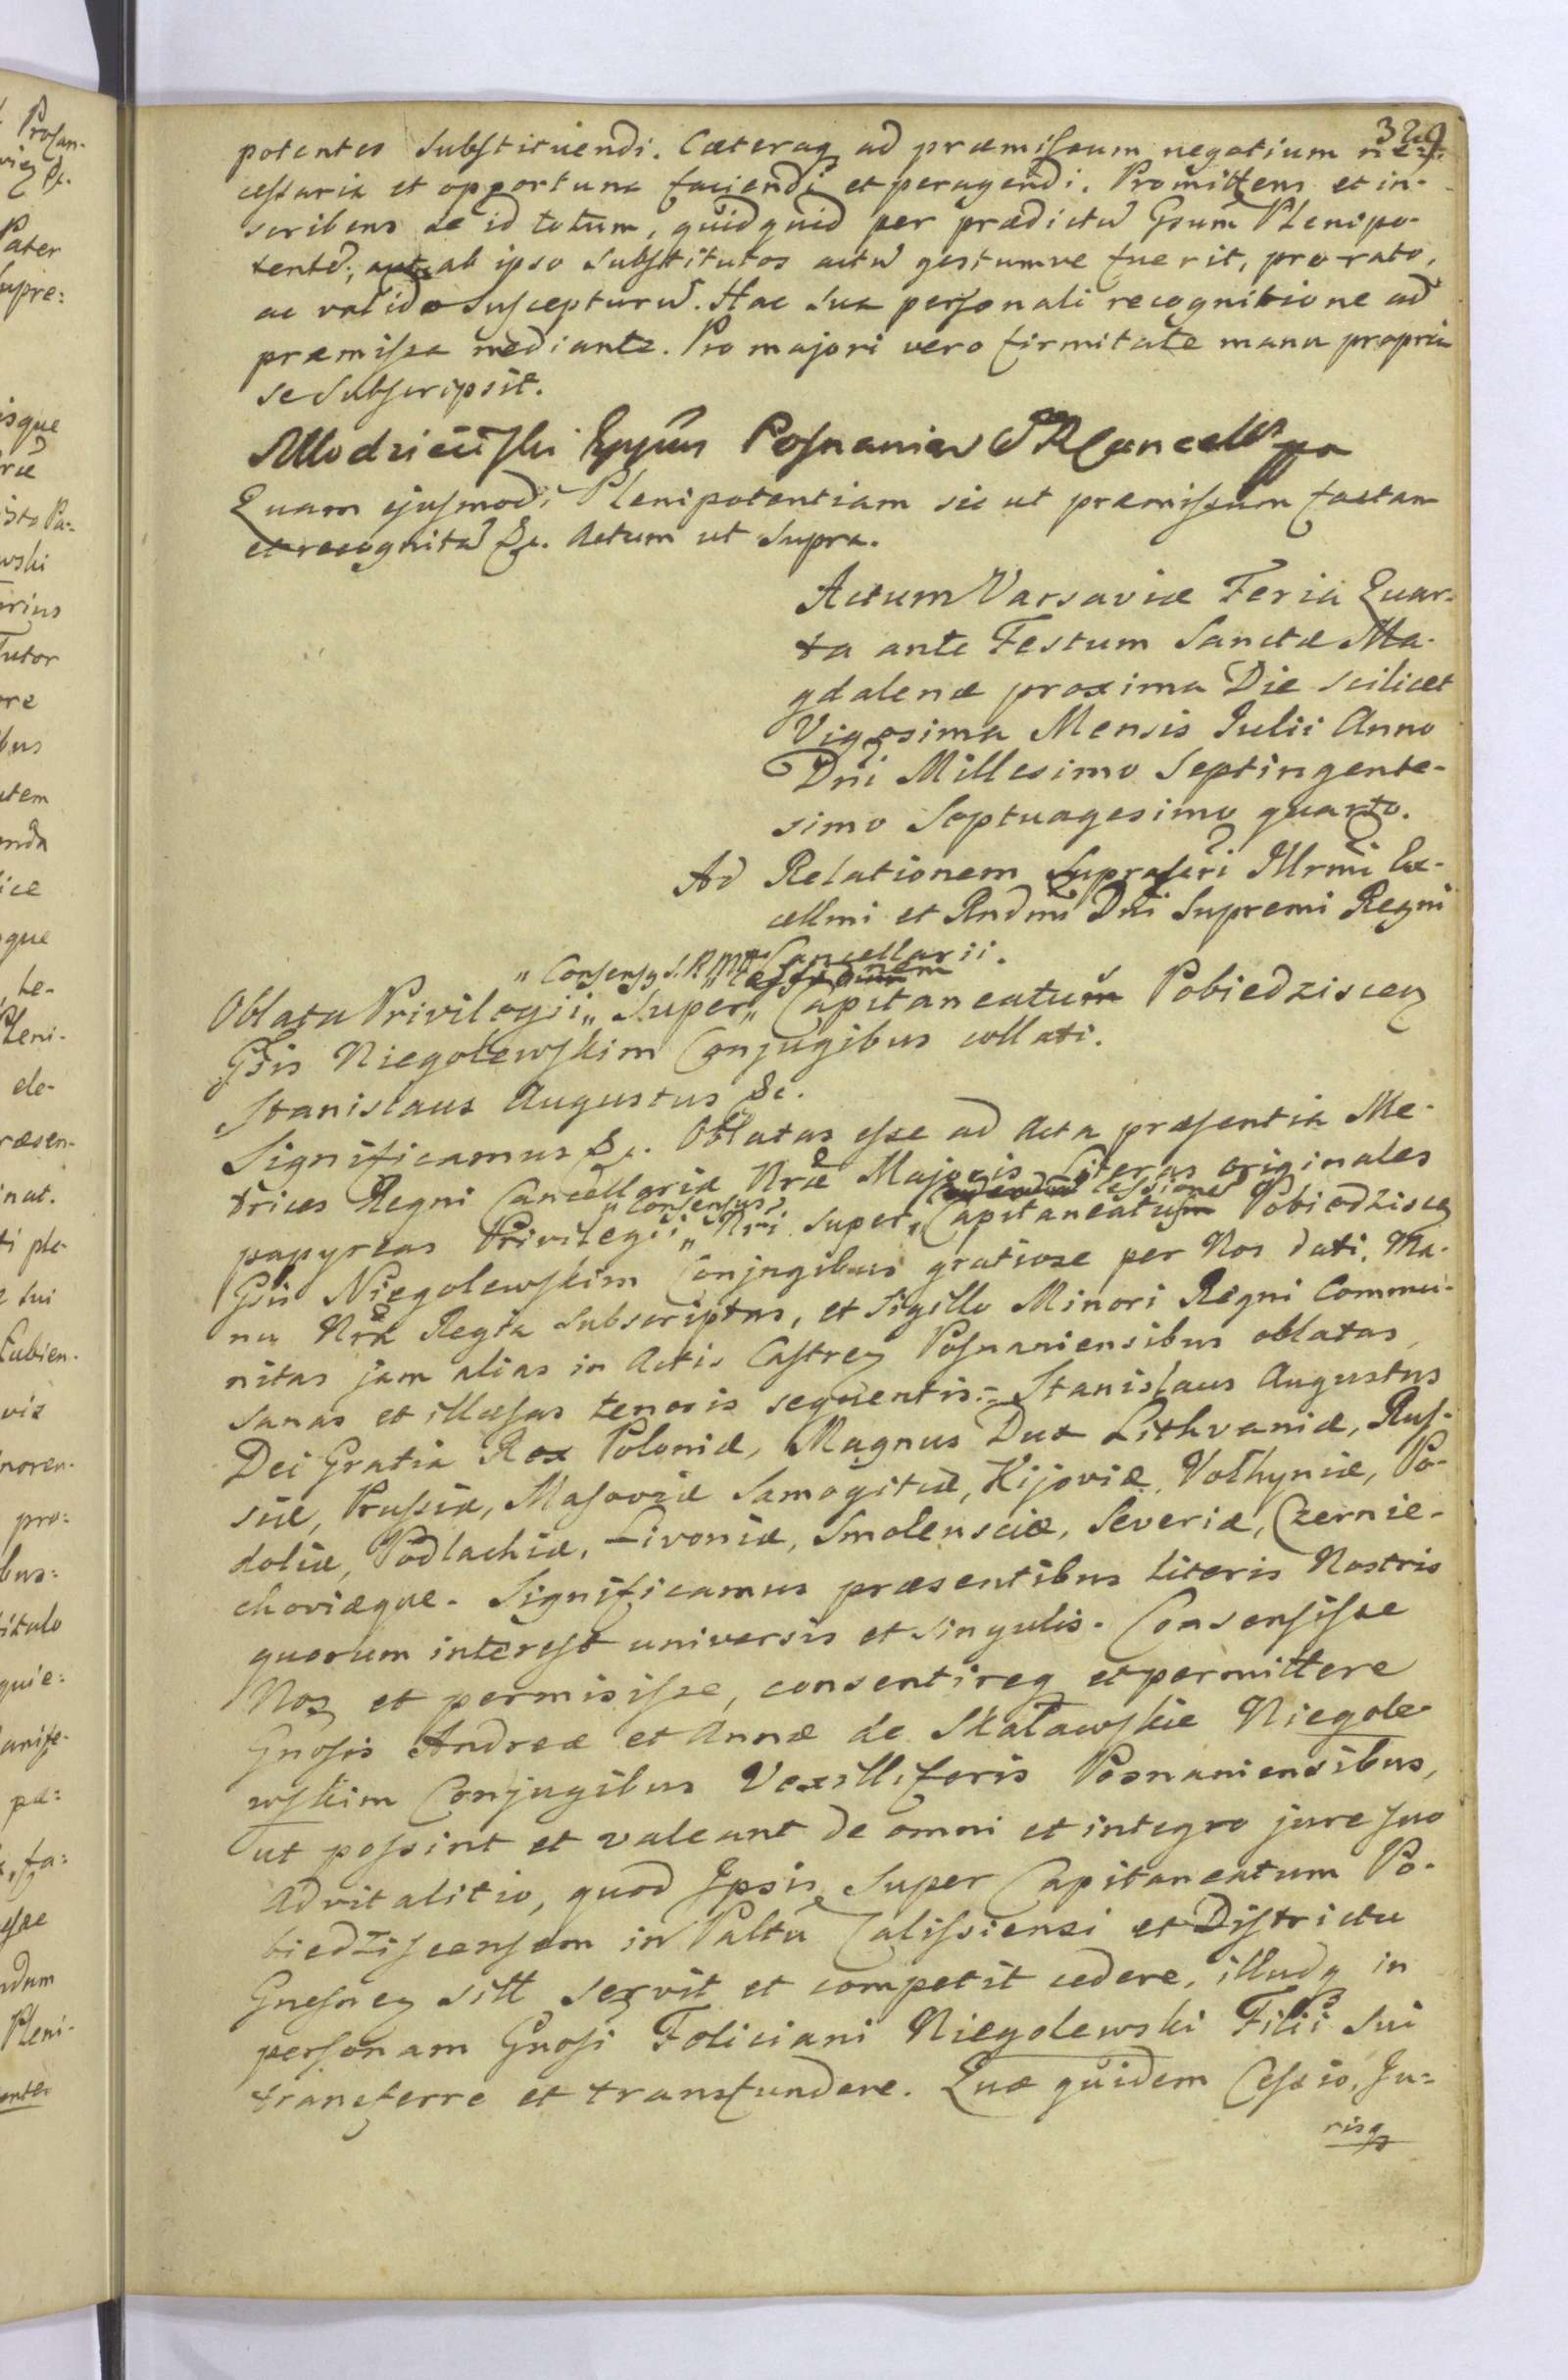 329
potentes substituendi. Cæteraq ad præmissum negotium ne-
cessaria et opportuna faciendi et peragendi. Promittens et in-
scribens se id totum, quidquid per prædictū Gsum Plenipo-
tentē, aut ab ipso substitutos actū gestumve fuerit, pro rato,
ac valido suscepturū. Hac sua personali recognitione ad
præmissa mediante. Pro majori vero firmitate manu propria
se subscripsit.
Młodzieiiski Eppus Posnanien S R Cancell mpa
Quam ejusmodi Plenipotentiam sic ut præmissum factam
et recognitā &c. Actum ut supra.
Actum Varsaviæ Feria Quar-
ta ante Festum Sanctæ Ma-
gdalenæ proxima Die scilicet
Vigesima Mensis Julii Anno
Dni Millesimo Septingente-
simo Septuagesimo quarto.
Ad Relationem Suprascri Illrmi Ex-
cellmi et Rndmi Dni Supremi Regni
Cancellarii.
„Consensq S.R.Mtis cessionem
Oblata Privilegii„ Super„ Capitaneatum Pobiedziscen
Gsis Niegolewskim Conjugibus collati.
Stanislaus Augustus &c.
Significamus &c. Oblatas esse ad Acta præsentia Me-
trices Regni Cancellariæ Nræ Majoris Literas originales
„Consensus„ cessione
papyreas Privilegii„ Nri super„ Capitaneatum Pobiedziscen
Gsis Niegolewskim Conjugibus gratiose per Nos dati, Ma-
nu Nra Regia subscriptas, et Sigillo Minori Regni Commu-
nitas jam alias in Actis Castren Posnaniensibus oblatas,
sanas et illæsas tenoris sequentis:= Stanislaus Augustus
Dei Gratia Rex Poloniæ, Magnus Dux Lithvaniæ, Rus-
siæ, Prussiæ, Masoviæ Samogitiæ, Kijoviæ, Volhyniæ, Po-
doliæ, Podlachiæ, Livoniæ, Smolensciæ, Severiæ, Czernie-
choviæque. Significamus præsentibus literis Nostris
quorum interest universis et singulis. Consensisse
Nos et permisisse, consentireq et permittere
Gnosis Andreæ et Annæ de Skaławskie Niegole-
wskim Conjugibus Vexilliferis Posnaniensibus,
ut possint et valeant de omni et integro jure suo
advitalitio, quod Ipsis super Capitaneatum Po-
biedziscensem in Palttu Calissiensi et Districtu
Gnesnen sitt servit et competit cedere, illudq in
personam Gnosi Feliciani Niegolewski Filii sui
transferre et transfundere. Quæ quidem Cessio, Ju-
risq